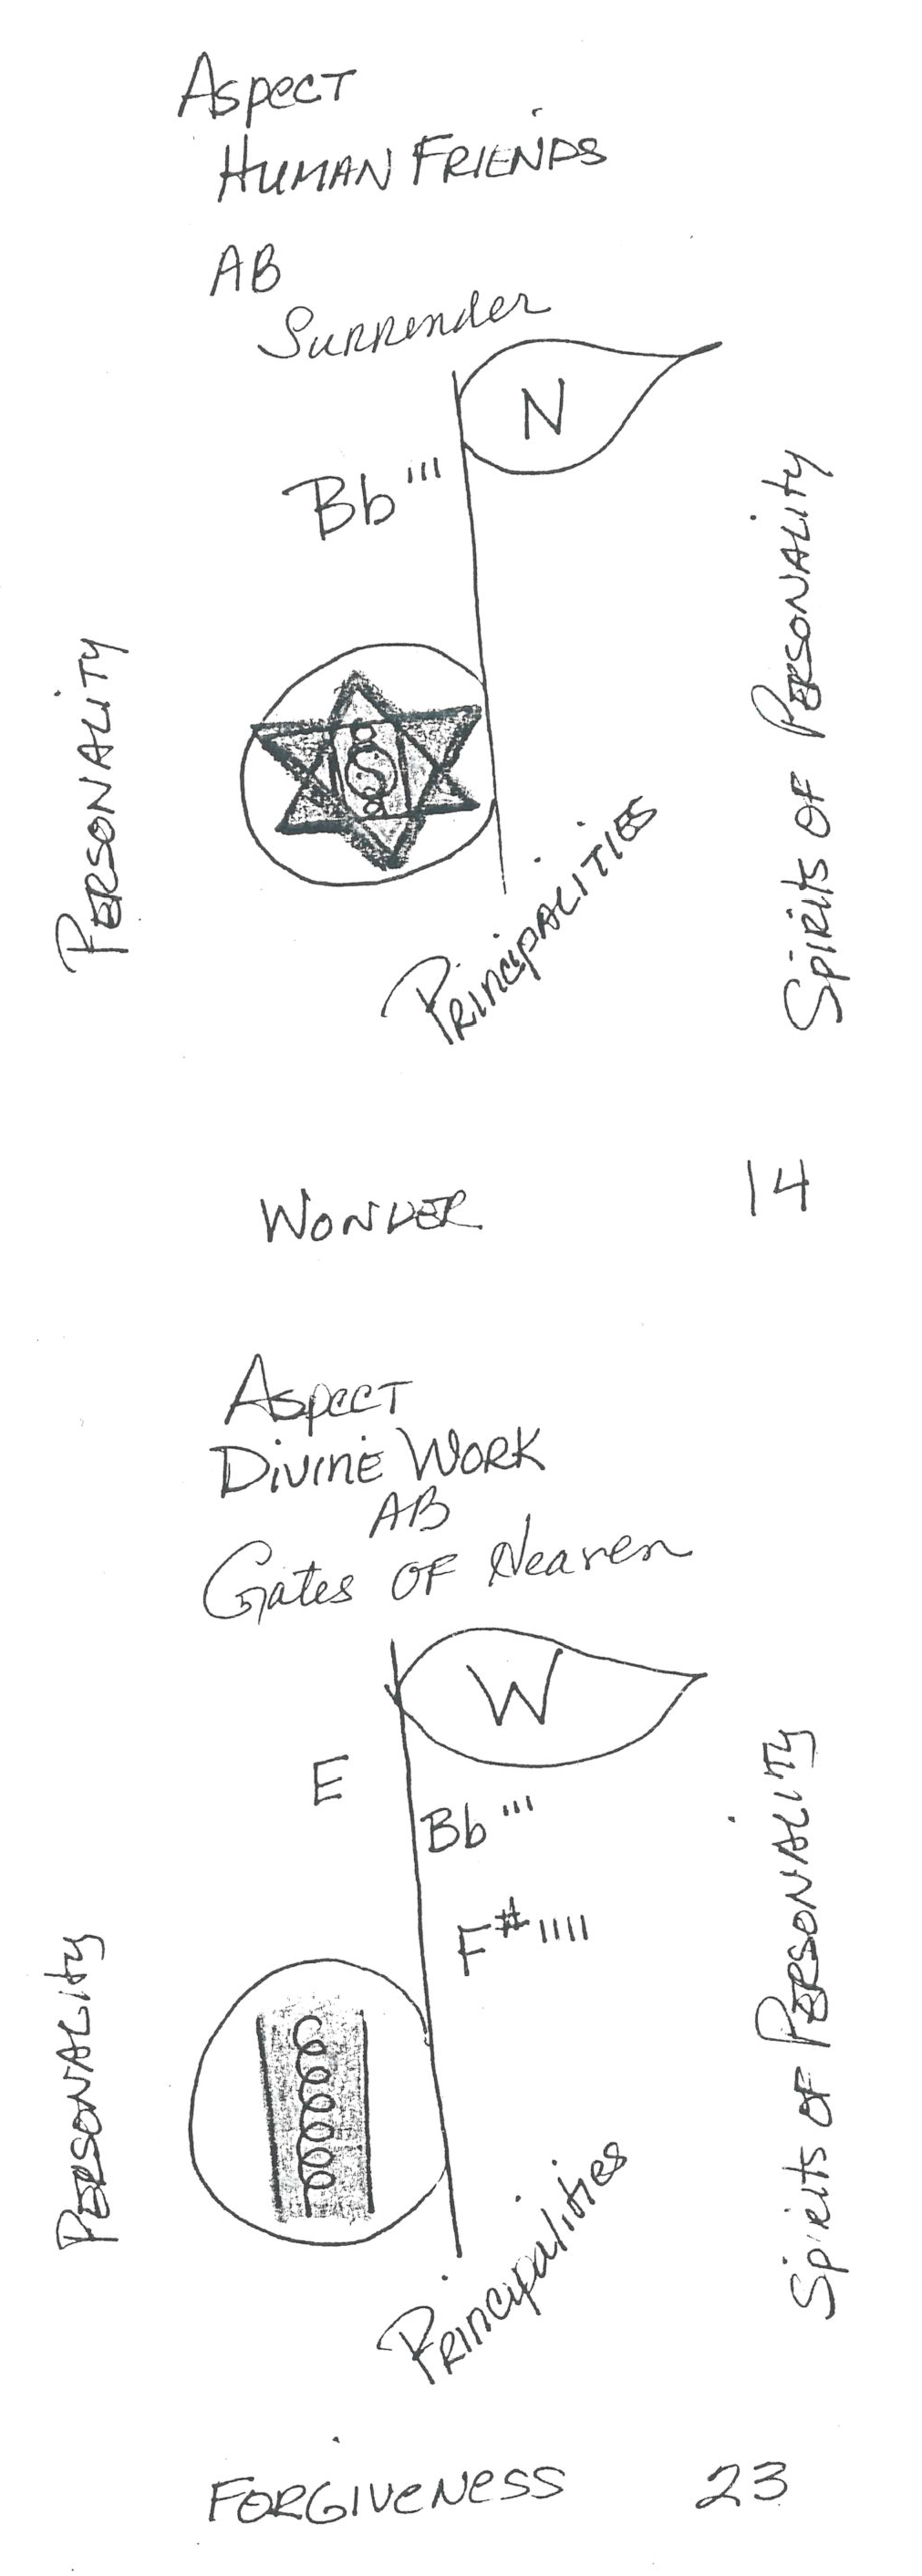 Aspect
HUMAN FRIENDS
AB
Surrender
N
Bb'''
PERSONALITY
Spirits of PERSONALITY
S
PRINCIPALITIES
WONDER
14
Aspect
Divine WORK
AB
Gates of Heaven
W
E
Bb'''
F#''''
PERSONALITY
Spirits of PERSONALITY
Principalities
FORGIVENESS
23